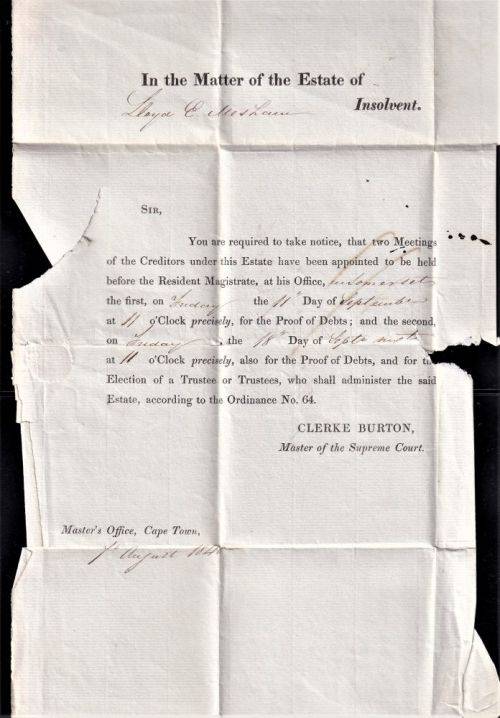 In the Matter of the Estate of
Lloyd E. Mesham Insolvent.
SIR,
You are required to take notice, that two Meetings
of the Creditors under this Estate have been appointed to be held
before the Resident Magistrate, at his Office, in Somerset
the first, on Friday the 11th Day of September
at 11 o'Clock precisely, for the Proof of Debts; and the second,
on Friday, the 18th Day of Septr next
at 11 o'Clock precisely, also for the Proof of Debts, and for the
Election of a Trustee or Trustees, who shall administer the said
Estate, according to the Ordinance No. 64.
CLERKE BURTON,
Master of the Supreme Court.
Master's Office, Cape Town,
August